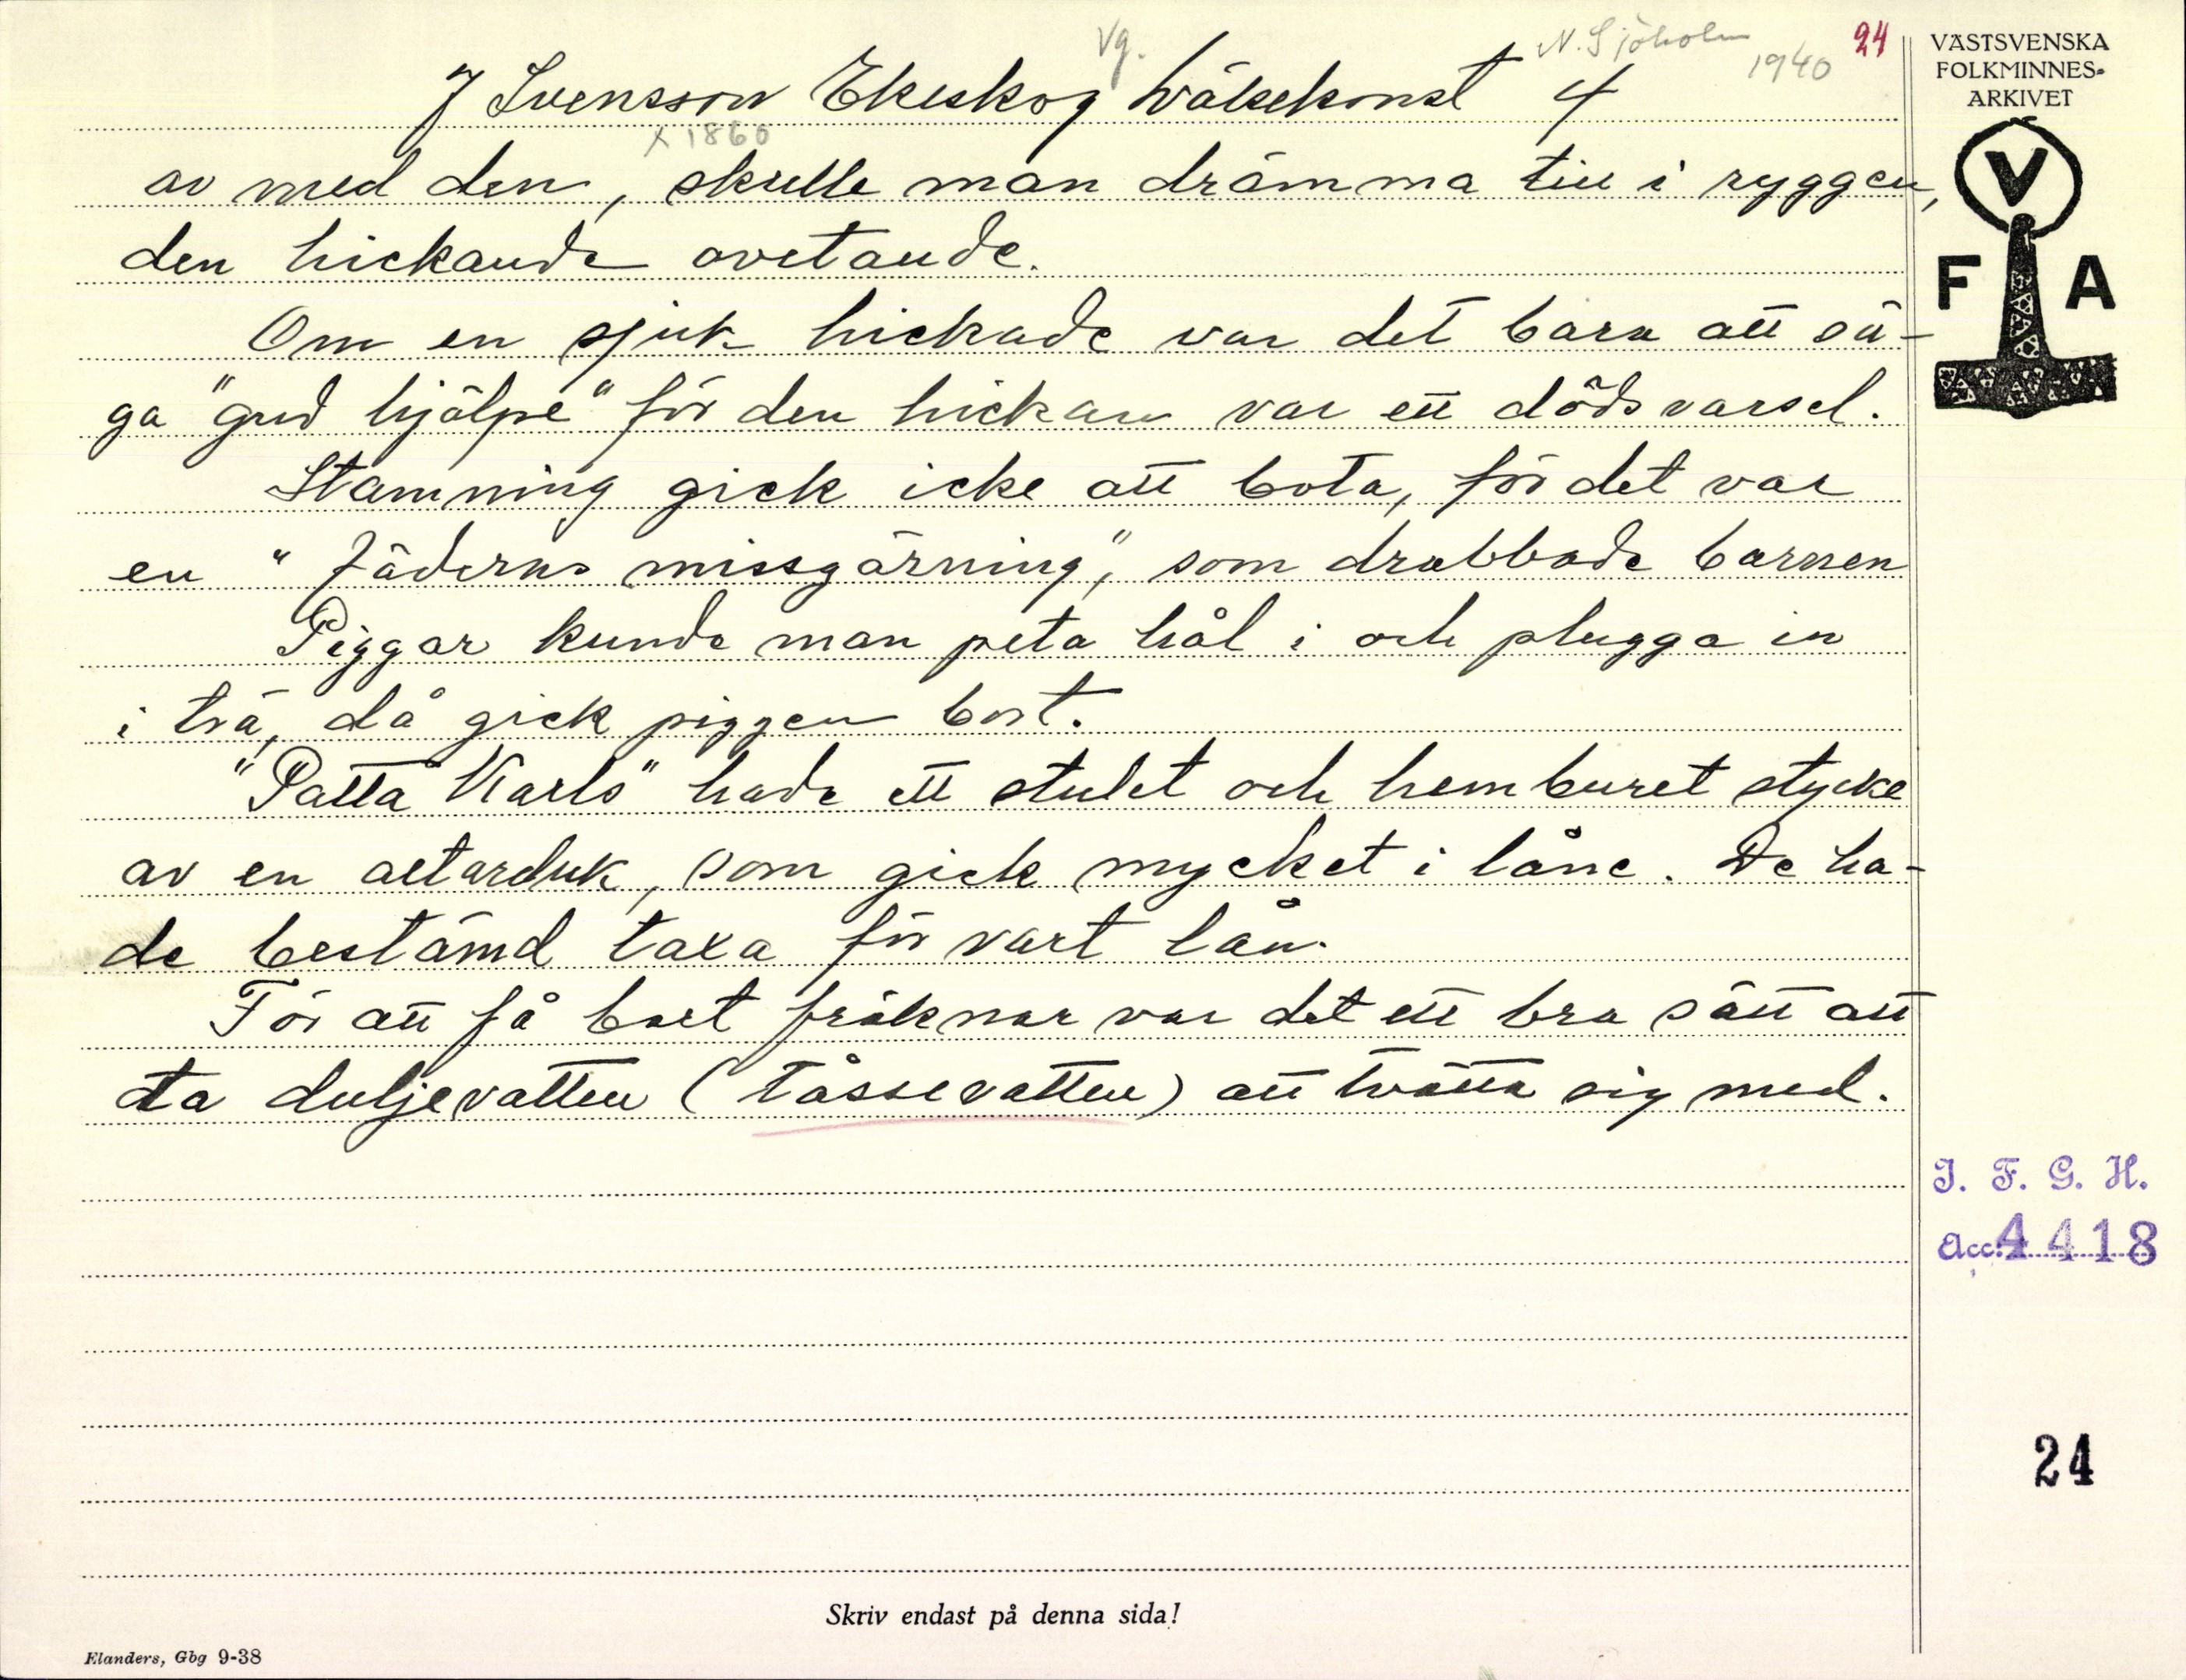 Vg. N. Sjöholm 1940 24
J Svensson Ekeskog Läkekonst 4
x 1860
av med den, skulle man drämma till i ryggen,
den hickande ovetande.
Om en sjuk hickade var det bara att sä-
ga "gud hjälpe" för den hickan var ett dödsvarsel.
Stamning gick icke att bota, för det var
en "fäderns missgärning", som drabbade barnen
Piggar kunde man peta hål i och plugga in
i trä, då gick piggen bort.
"Patta Karls" hade ett stulet och hemburet stycke
av en altarduk, som gick mycket i låne. De ha-
de bestämd taxa för vart lån.
För att få bort fräknar var det ett bra sätt att
ta duljevatten (tåssevatten) att tvätta sig med.
VÄSTSVENSKA
FOLKMINNES-
ARKIVET
V
F A
I. F. G. H.
Acc. 4418
24
Skriv endast på denna sida!
Elanders, Gbg 9-38